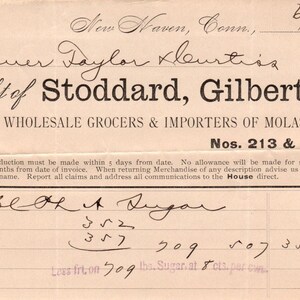 New Haven, Conn.,
Taylor & Curtiss
of Stoddard, Gilbert
WHOLESALE GROCERS & IMPORTERS OF MOLAS
Nos. 213 &
duction must be made within 5 days from date. No allowance will be made for
nths from date of invoice. When returning Merchandise of any description advise us
name. Report all claims and address all communications to the House direct.
A Sugar
352
357 709 507
Less frt. on 709 lbs. Sugar, at 8 cts. per cwt.